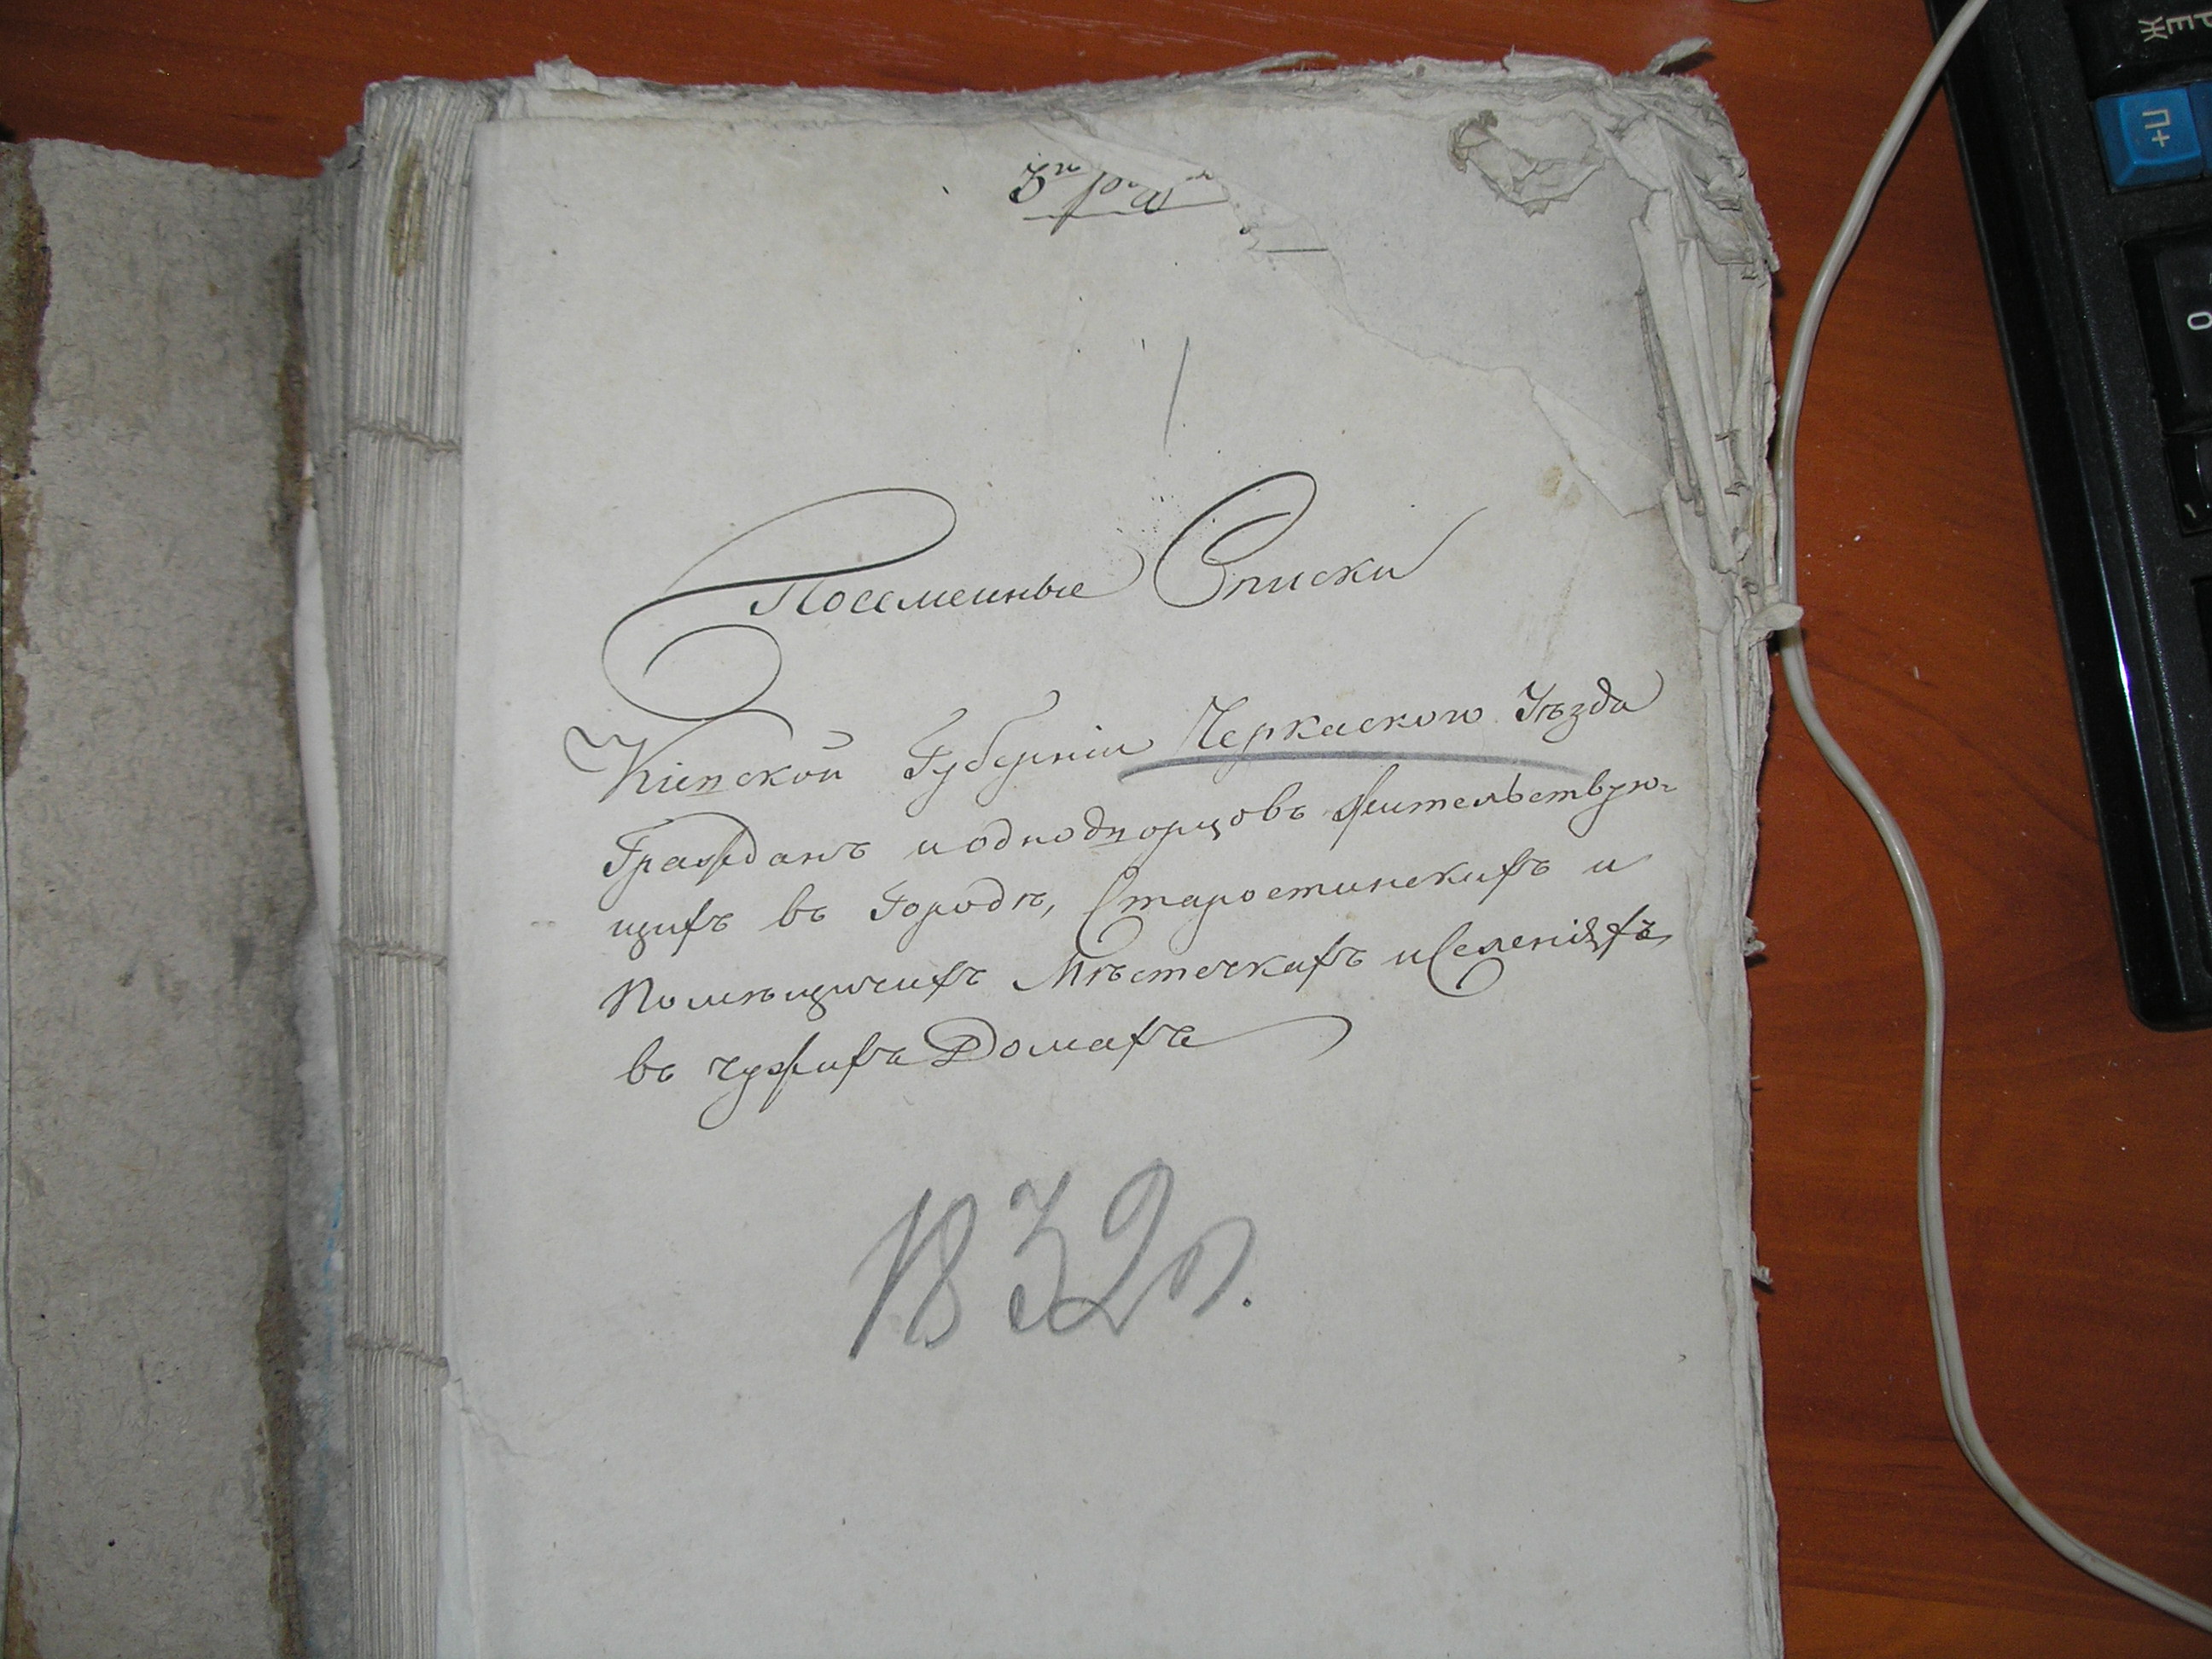 3го р
Посемейные Списки
Кіевской Губерніи Черкаского Уѣзда
Гражданъ и однодворцовъ жительствую-
щихъ въ Городѣ, Старостинскихъ и
Помѣщичихъ Мѣстечкахъ и Селеніяхъ
въ чужихъ Домахъ
1832г.
Е
Ж
П+
О